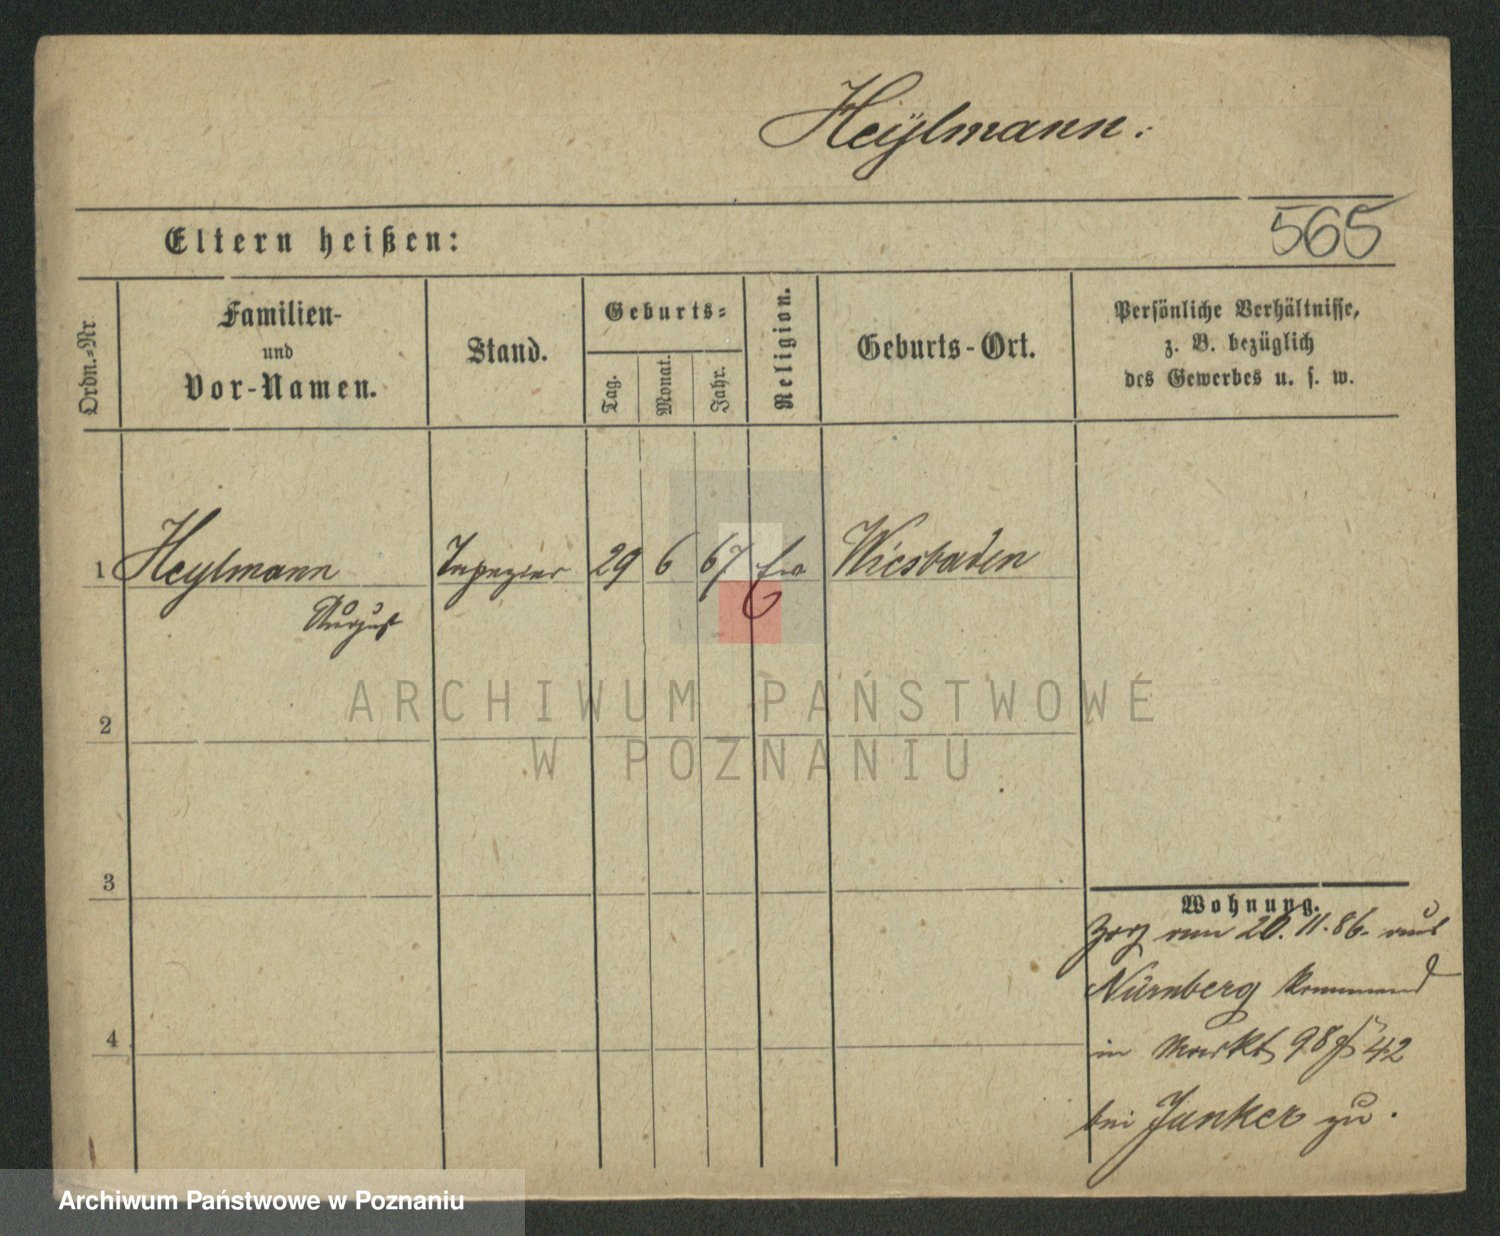 Heÿlmann.
Eltern heißen:
565
Ordn.=Nr
Familien-
und
Vor-Namen.
Stand.
Geburts=
Tag.
Monat.
Jahr.
Religion.
Geburts-Ort.
Persönliche Verhältnisse,
z. B. bezüglich
des Gewerbes u. s. w.
1 Heylmann Tapezier 29 6 67 Wiesbaden
August
ARCHIWUM PAŃSTWOWE
W POZNANIU
2
3
4
Wohnung.
Zog am 20. 11. 86. aus
Nürnberg kommend
in Markt 98/42
bei Junker zu.
Archiwum Państwowe w Poznaniu